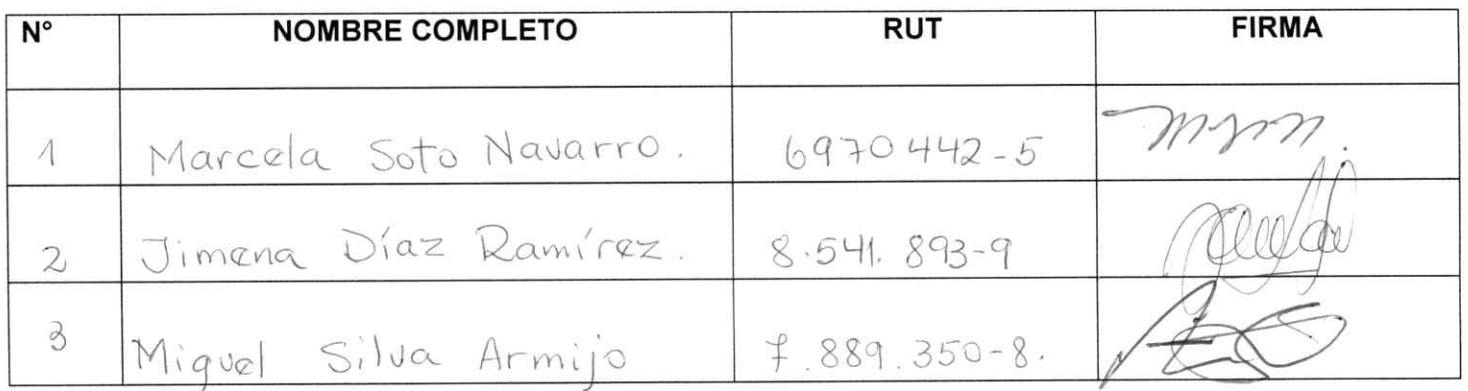 N° NOMBRE COMPLETO RUT FIRMA
1 Marcela Soto Navarro. 6970442-5
2 Jimena Díaz Ramírez. 8.541.893-9
3 Miguel Silva Armijo 7.889.350-8.